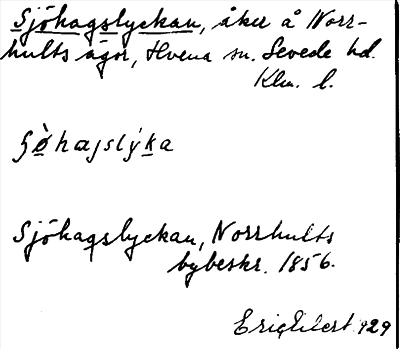 Sjöhagslyckan, åker å Norr-
hults ägor, Hvena sn. Sevede hd.
Klm. l.
Sjöhagslyckan, Norrhults
bybeskr. 1856.
Eric Elert 1929